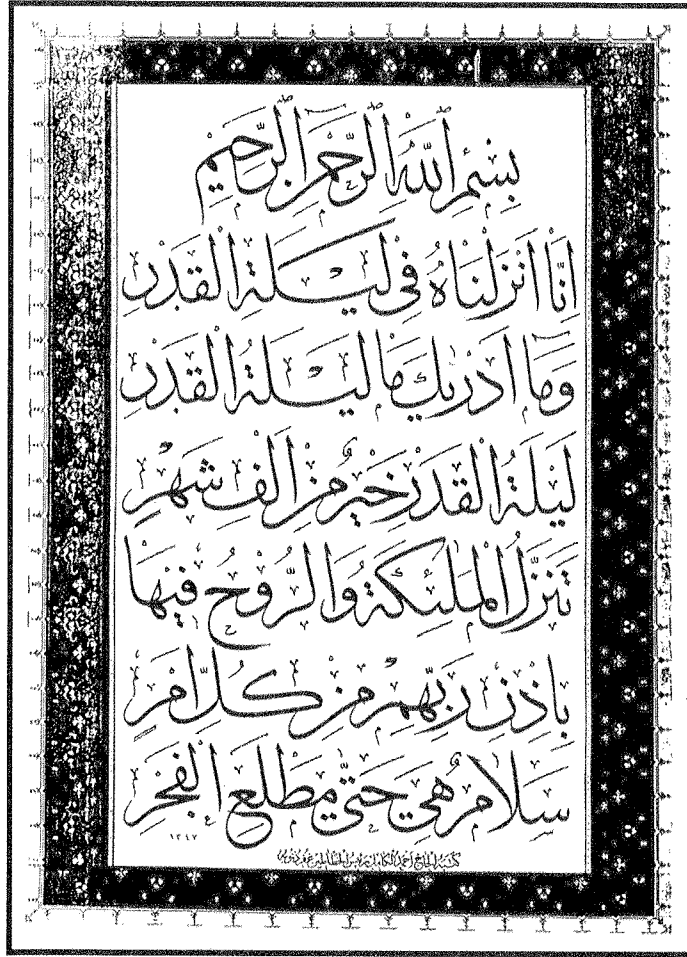 بِسْمِ اللّٰهِ الرَّحْمٰنِ الرَّحِيمِ
اِنَّا اَنْزَلْنَاهُ فِى لَيْلَةِ الْقَدْرِ
وَمَا اَدْرٰيكَ مَا لَيْلَةُ الْقَدْرِ
لَيْلَةُ الْقَدْرِ خَيْرٌ مِنْ اَلْفِ شَهْرٍ
تَنَزَّلُ الْمَلٰئِكَةُ وَالرُّوحُ فِيهَا
بِاِذْنِ رَبِّهِمْ مِنْ كُلِّ اَمْرٍ
سَلَامٌ هِىَ حَتّٰى مَطْلَعِ الْفَجْرِ
١٣٤٧
كتبه الحاج احمد الكامل رئيس الخطاطين